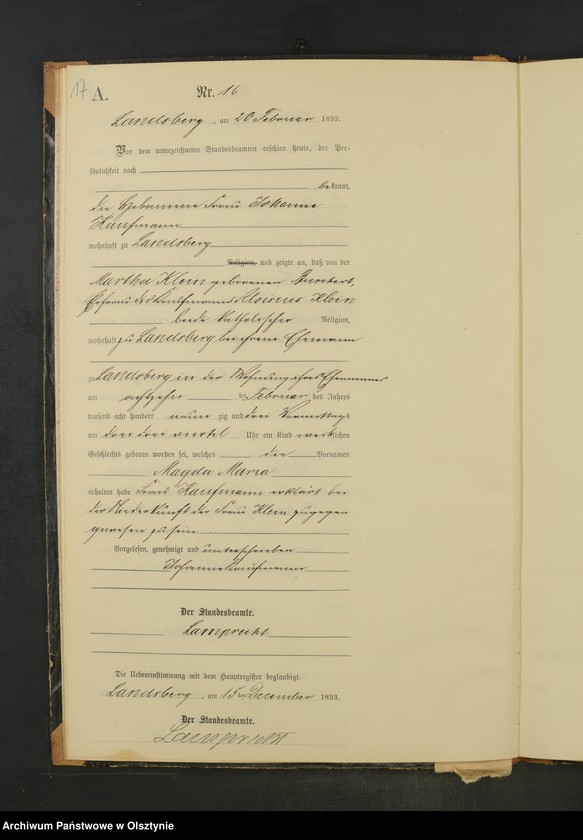 17
A.
Nr. 16
Landsberg, am 20 Februar 1893.
Vor dem unterzeichneten Standesbeamten erschien heute, der Per-
sönlichkeit nach
bekannt,
die Hebamme Frau Johanna
Kaufmann
wohnhaft zu Landsberg
Religion, und zeigte an, daß von der
Martha Klein geborenen Burchert,
Ehefrau des Kaufmanns Aloisius Klein
beide katholischer Religion,
wohnhaft zu Landsberg bei ihrem Ehemann
zu Landsberg in der Wohnung ihres Ehemannes
am achtzehn ten Februar des Jahres
tausend acht hundert neun zig und drei Vormittags
um drei drei viertel Uhr ein Kind weiblichen
Geschlechts geboren worden sei, welches den Vornamen
Magda Maria
erhalten habe Frau Kaufmann erklärt bei
der Niederkunft der Frau Klein zugegen
gewesen zu sein
Vorgelesen, genehmigt und unterschrieben
Johanna Kaufmann
Der Standesbeamte.
Lamprecht
Die Uebereinstimmung mit dem Hauptregister beglaubigt.
Landsberg, am 15 ten December 1893.
Der Standesbeamte.
Lamprecht
Archiwum Państwowe w Olsztynie